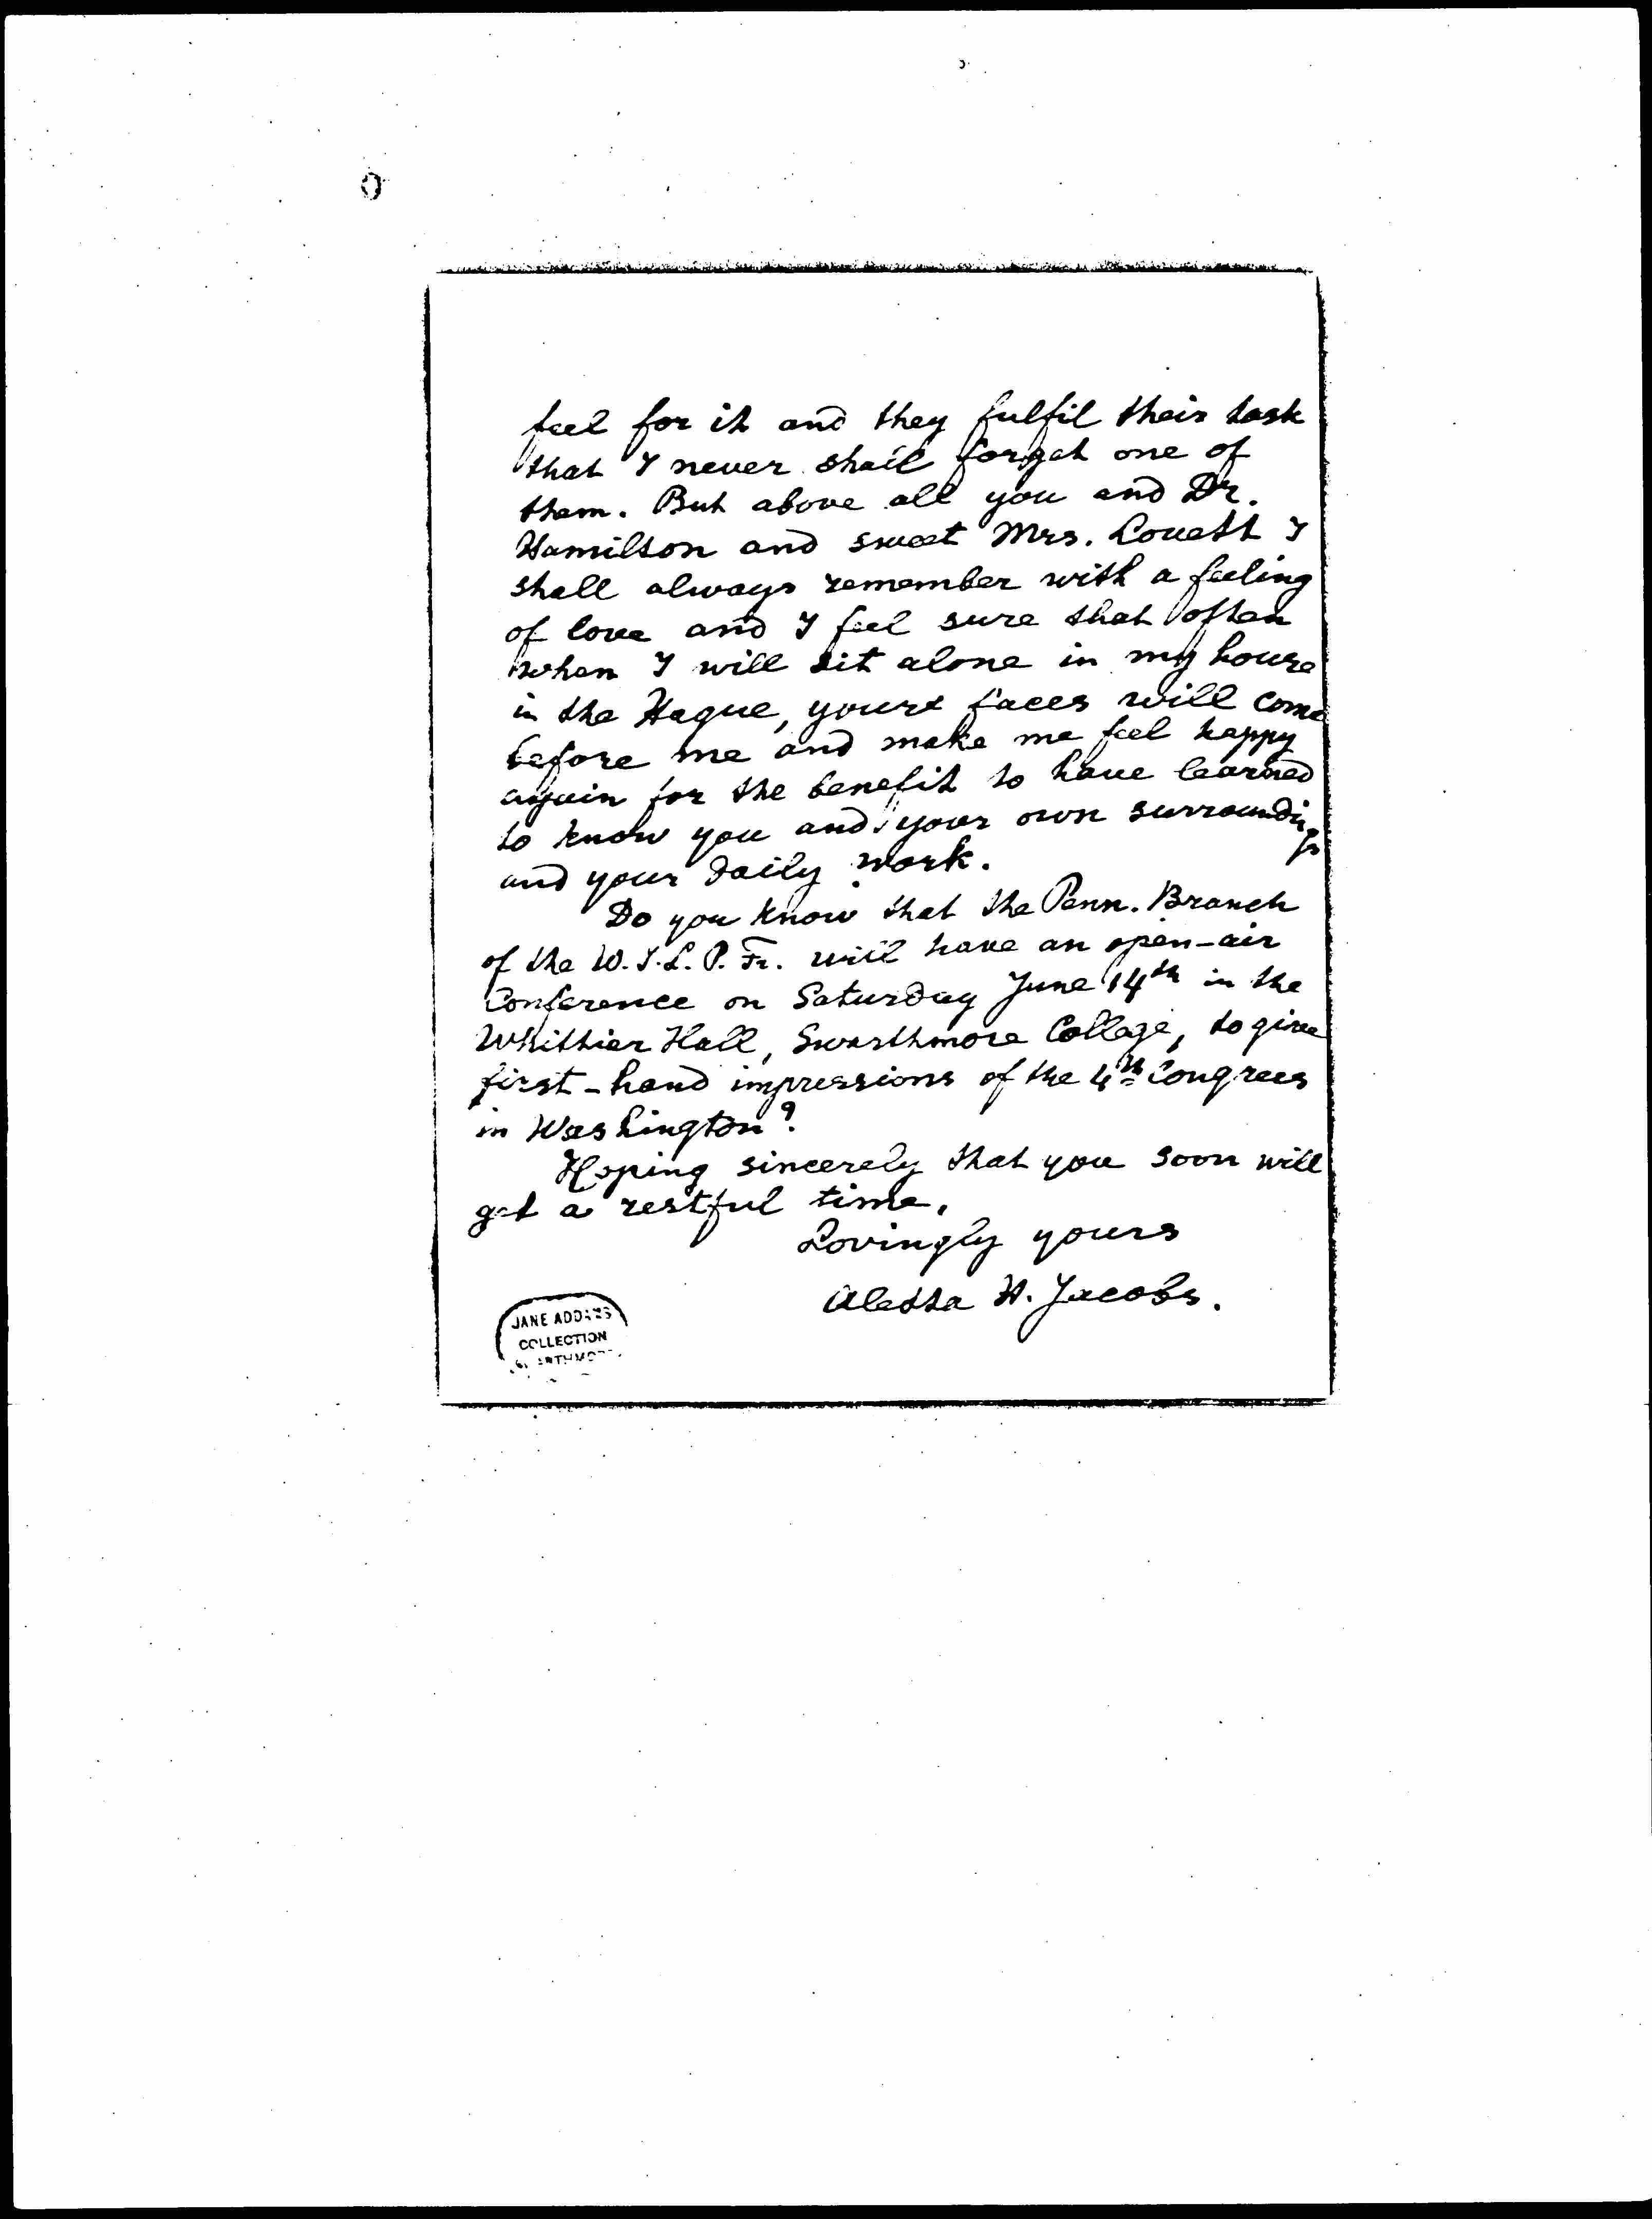 feel for it and they fulfil their task
that I never shall forget one of
them. But above all you and Dr.
Hamilton and sweet Mrs. Lovett I
shall always remember with a feeling
of love and I feel sure that often
when I will sit alone in my house
in the Hague, yours faces will come
before me and make me feel happy
again for the benefit to have learned
to know you and your own surroundings
and your daily work.
Do you know that the Penn. Branch
of the W.I.L.P.Fr. will have an open-air
Conference on Saturday June 14th in the
Whittier Hall, Swarthmore College, to give
first-hand impressions of the 4th Congrees
in Washington?
Hoping sincerely that you soon will
get a restful time.
Lovingly yours
Aletta H. Jacobs.
JANE ADDAMS
COLLECTION